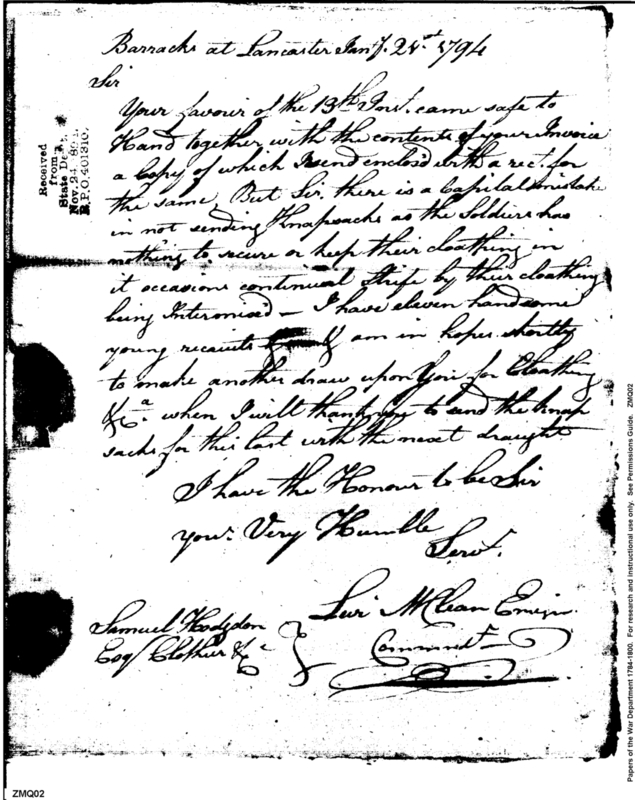 Barracks at Lancaster Jany. 21st. 1794
Sir
Your favour of the 13th Inst. came safe to
Hand together with the contents of your Invoice
a Copy of which I send enclos'd with a rect. for
the same, But Sir, there is a Capital mistake
in not sending Knapsacks as the Soldiers has
nothing to secure or keep their cloathing in
it occasions continual Strife by their cloathing
being Intermixd — I have eleven handsome
young recruits & am in hopes shortly
to make another draw upon You for Cloathing
&ca. when I will thank you to send the knap
sacks for this last with the next draught
I have the Honour to be Sir
your. Very Humble
Servt.
Levi McClean Ensign
Commndt.
Samuel Hodgdon
Esqr Clothier &c
Received
from
State De
Nov. 24, 
R.P.O. 401310.
Papers of the War Department 1784-1800. For research and instructional use only. See Permissions Guide. ZMQ02
ZMQ02